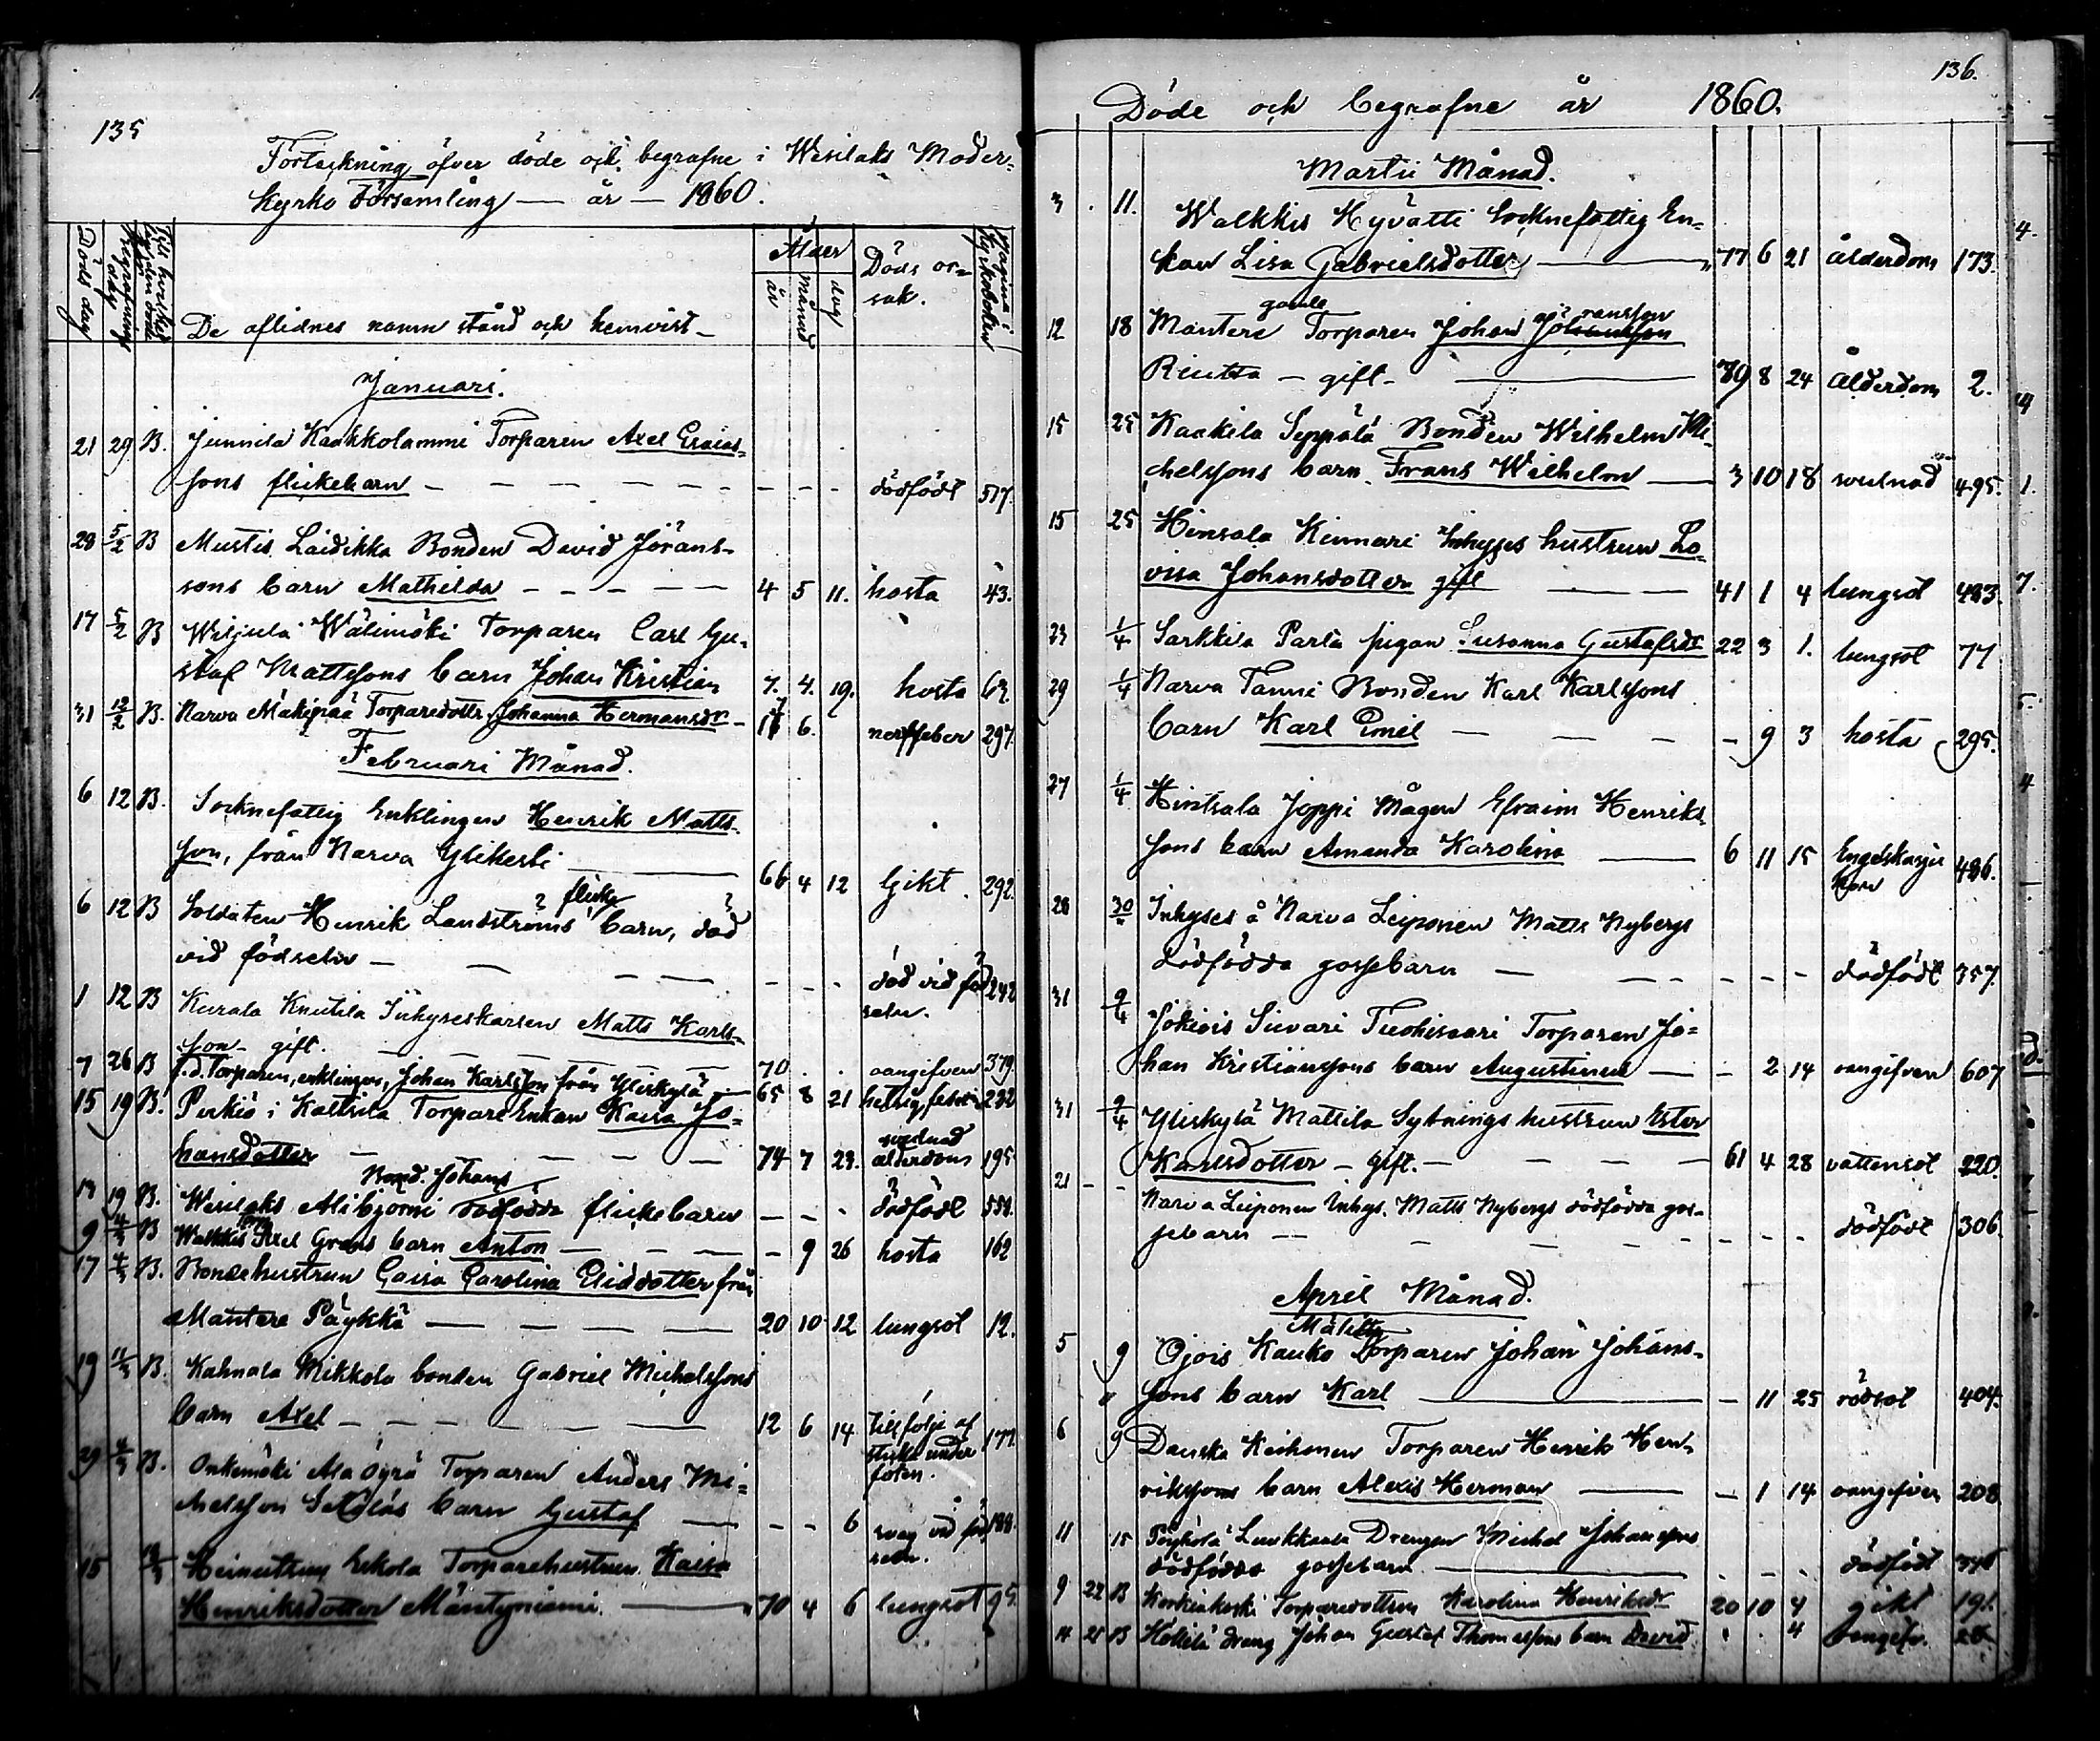 135
Förteckning öfver döde och begrafne i Wesilaks Moder-
kyrko Församling — år — 1860.
Döds dag
Begrafnings dag
De aflidnes namn stånd och hemvist
Ålder
år
månad
dag
Döds or-
sak.
pagina i kyrkoboken
Januari.
21 29 B. Junnila Kaakkolammi Torparen Axel Esaias-
sons flickebarn — — — dödfödt 517.
28 5/2 B Mustis Laidikka Bonden David Jörans-
sons barn Mathilda — — — 4 5 11. hosta 43.
17 5/2 B Wälimäki Torparen Carl Gu-
staf Mattssons barn Johan Kristian 7. 4. 19. hosta
31 12/2 B. Narva Mäkipää Torparedottr. Johanna Hermansdr — 6. nerffeber 297.
Februari Månad.
6 12 B. Socknefattig Enklingen Henrik Matts-
son, från Narva Ylikesti — 66 4 12 Gikt. 292.
6 12 B Soldaten Henrik Landströms flicke barn, död
vid födseln — — — död vid föd- 242
seln.
1 12 B Kurala Knutila Inhyseskarlen Matts Karls-
son — gift. — — 70 . . oangifven 379.
7 26 B f.d. Torparen, enklingen, Johan Karlsson från Yliskylä — 65 8 21 hetsig feber 232
15 19 B. Purkiö i Kaltsila Torpare Enkan Kaisa Jo-
hansdotter — — — 74 7 29. ålderdom 195.
Bond. Johans
19 B. Wesilaks Alibjorni dödfödda flickebarn — — — dödfödt 559.
9 4/3 B Walkkis Axel Gröns barn Anton — — — 9 26 hosta 162
17 4/3 B. Bondehustrun Caisa Carolina Eliddotter från
Mantere Päykkä — — — 20 10 12 lungsot 12.
19 11/3 B. Kahnala Mikkola bonden Gabriel Michelssons
barn Axel — — — 12 6 14 till följe af 177.
sticka under
foten.
29 4/3 B. Onkemäki Ala Öyrä Torparen Anders Mi-
chelsson barn Gustaf — — — 6 svag vid föd- 188.
seln.
15 Eskola Torparehustrun Kaisa
Henriksdotter Mäntyniemi. — 70 4 6 lungsot 95.
136.
Döde och begrafne år 1860.
Martii Månad.
3 . 11. Walkkis Hyvätti Socknefattig En-
kan Lisa Gabrielsdotter — 77 6 21 ålderdom 173.
gamle
12 18 Mantere Torparen Johan Jöransson
— gift — 79 8 24 Ålderdom 2.
15 25 Kaakila Seppälä Bonden Wilhelm Mi-
chelssons barn Frans Wilhelm — 3 10 18 svulnad 495.
15 25 Hinsala Kinnari Inhyses hustrun Lo-
visa Johansdotter gift — — 41 1 4 lungsot 483.
23 1/4 Sarkkila Parta pigan Susanna Gustafsdr 22 3 1. lungsot 77
29 1/4 Narva Tanni Bonden Karl Karlssons
barn Karl Emil — — — — 9 3 hosta 295.
27 1/4 Hintsala Joppi Mågen Efraim Henriks-
sons barn Amanda Karolina — 6 11 15 486.
28 30 Inhyses å Narva Leiponen Matts Nybergs
dödfödda gossebarn — — — dödfödt 357.
31 9/4 Jokiois Sivari Torparen Jo-
han Kristianssons barn Augustina — — 2 14 oangifven 607
31 9/4 Yliskylä Mattila Sytnings hustrun Ester
Karlsdotter — gift. — — 61 4 28 vattensot 220.
21 — — Narva Leiponen Inhys. Matts Nybergs dödfödda gos-
sebarn — — — dödfödt 306.
April Månad.
5 9 Ojois Kauko Torparen Johan Johans-
sons barn Karl — — 11 25 rödsot 404.
6 9 Danska Keihonen Torparen Henrik Hen-
rikssons barn Alexis Herman — — 1 14 oangifven 208
11 15 Päyhölä Luukkaala Drengen Michel Johanssons
dödfödda gossebarn — — — dödfödt
9 22 B Korkiakoski Torparedottren Karolina Henriksdr 20 10 4 gikt 191.
B drang Johan Gustaf Thomassons barn David . . 4 oangifv.